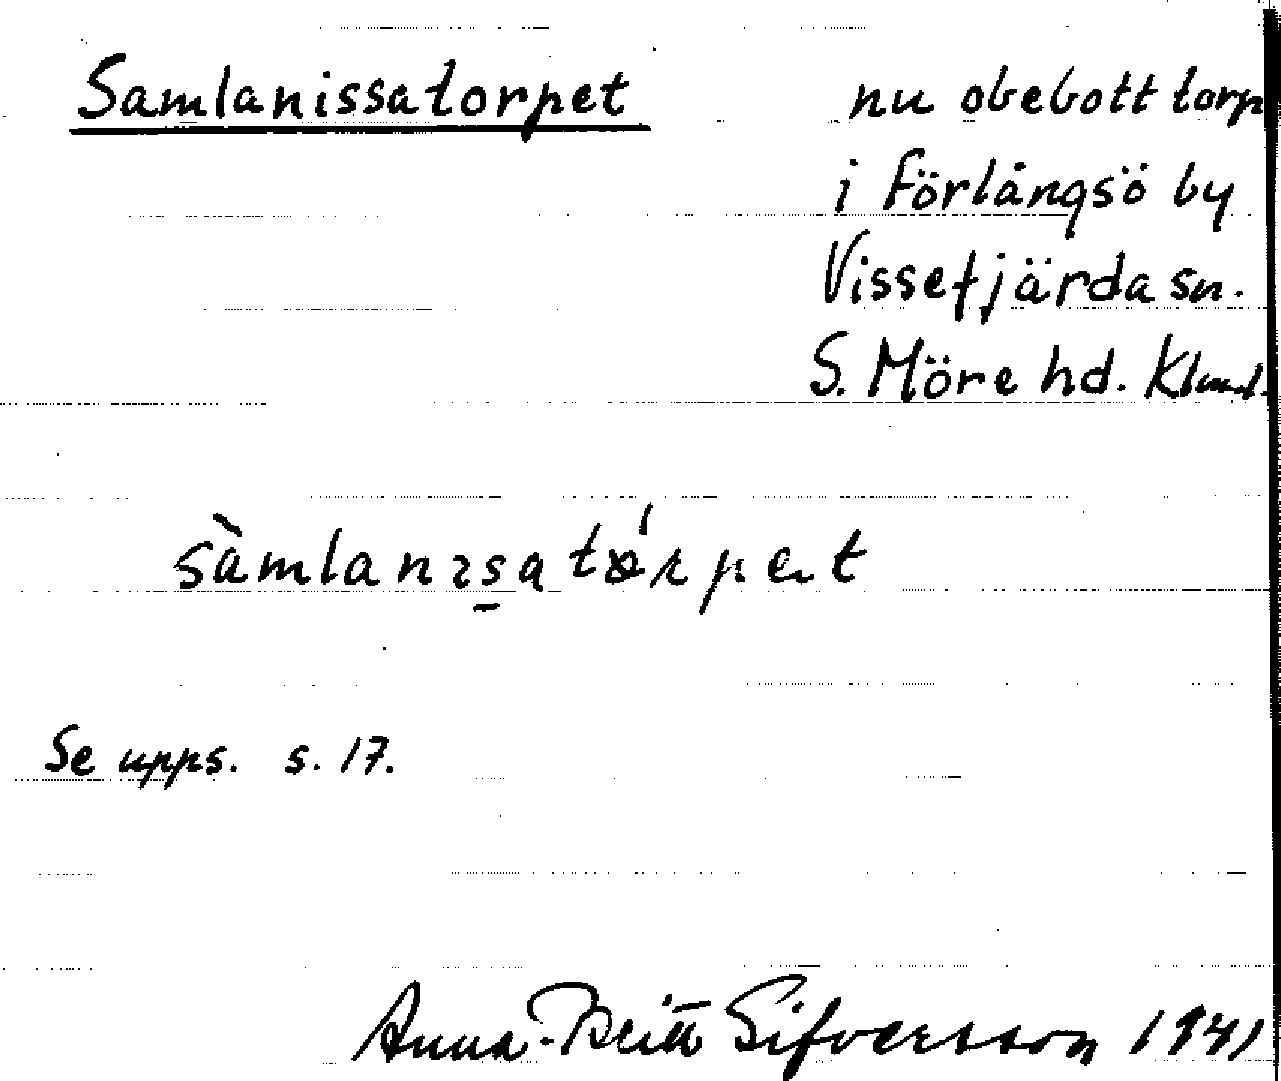 Samlanissatorpet
nu obebott torp
i Förlångsö by
Vissefjärda sn.
S. Möre hd. Klmd.
sàmlanɪsatórpet
Se upps. s. 17.
Anna-Britt Sifversson 1941